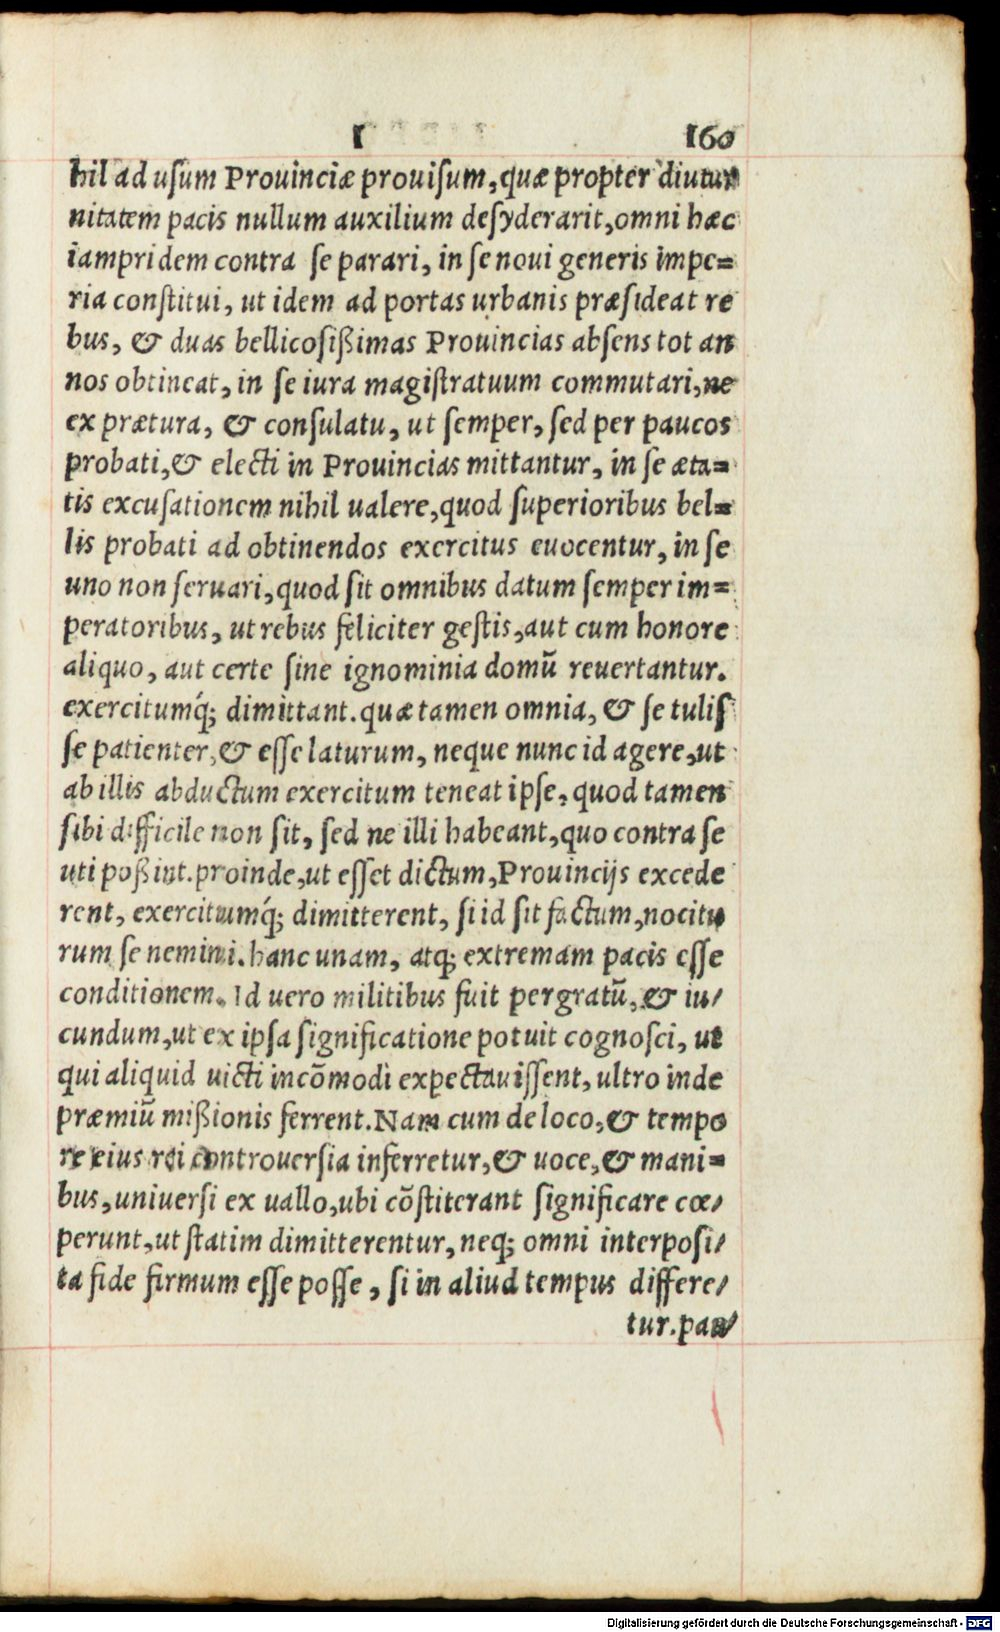 I 160
hil ad uſum Prouinciæ prouiſum, quæ propter diutur
nitatem pacis nullum auxilium deſyderarit, omni hæc
iampridem contra ſe parari, in ſe noui generis impe=
ria conſtitui, ut idem ad portas urbanis præſideat re
bus, & duas bellicoſißimas Prouincias abſens tot an
nos obtineat, in ſe iura magiſtratuum commutari, ne
ex prætura, & conſulatu, ut ſemper, ſed per paucos
probati, & electi in Prouincias mittantur, in ſe æta=
tis excuſationem nihil ualere, quod ſuperioribus bel=
lis probati ad obtinendos exercitus euocentur, in ſe
uno non ſeruari, quod ſit omnibus datum ſemper im=
peratoribus, ut rebus feliciter geſtis, aut cum honore
aliquo, aut certe ſine ignominia domū reuertantur.
exercitumq́; dimittant. quæ tamen omnia, & ſe tuliſ
ſe patienter, & eſſe laturum, neque nunc id agere, ut
ab illis abductum exercitum teneat ipſe, quod tamen
ſibi difficile non ſit, ſed ne illi habeant, quo contra ſe
uti poßint. proinde, ut eſſet dictum, Prouincijs excede
rent, exercitumq́; dimitterent, ſi id ſit factum, nocitu
rum ſe nemini. hanc unam, atq; extremam pacis eſſe
conditionem. Id uero militibus fuit pergratū, & iu/
cundum, ut ex ipſa ſignificatione potuit cognoſci, ut
qui aliquid uicti incōmodi expectauiſſent, ultro inde
præmiū mißionis ferrent. Nam cum de loco, & tempo
re eius rei controuerſia inferretur, & uoce, & mani=
bus, uniuerſi ex uallo, ubi cōſtiterant ſignificare cœ/
perunt, ut ſtatim dimitterentur, neq; omni interpoſi/
ta fide firmum eſſe poſſe, ſi in aliud tempus differe/
tur. pau/
Digitalisierung gefördert durch die Deutsche Forschungsgemeinschaft - DFG